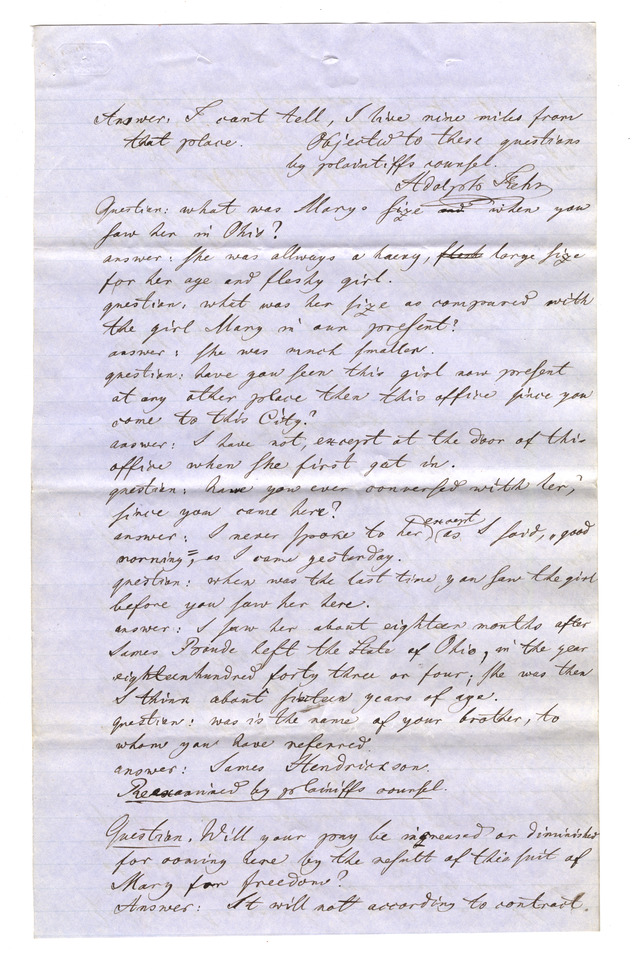 Answer: I cant tell, I live nine miles from
that place. Objected to these questions
by plaintiffs counsel.
Adolph Fehr
Question: what was Marys size and when you
saw her in Ohio?
answer: she was allways a heavy, flesh large size
for her age and fleshy girl.
question, what was her size as compared with
the girl Mary in our present?
answer: she was much smaller.
question: have you seen this girl now present
at any other place then this office since you
come to this City?
answer: I have not, except at the door of this
office when she first got in.
question: have you ever conversed with her,
since you came here?
answer: I never spoke to her except as I said, "good
morning", as I came yesterday.
question: when was the last time you saw the girl
before you saw her here.
answer: I saw her about eighteen months after
James Poude left the State of Ohio, in the year
eighteenhundred forty three or four; she was then
I think about sixteen years of age.
question: was is the name of your brother, to
whom you have referred.
answer: James Hendrickson.
Reexamined by plainiffs counsel.
Question. Will your pay be increased or diminished
for coming here by the result of this suit of
Mary for freedom?
Answer: It will not according to contract.